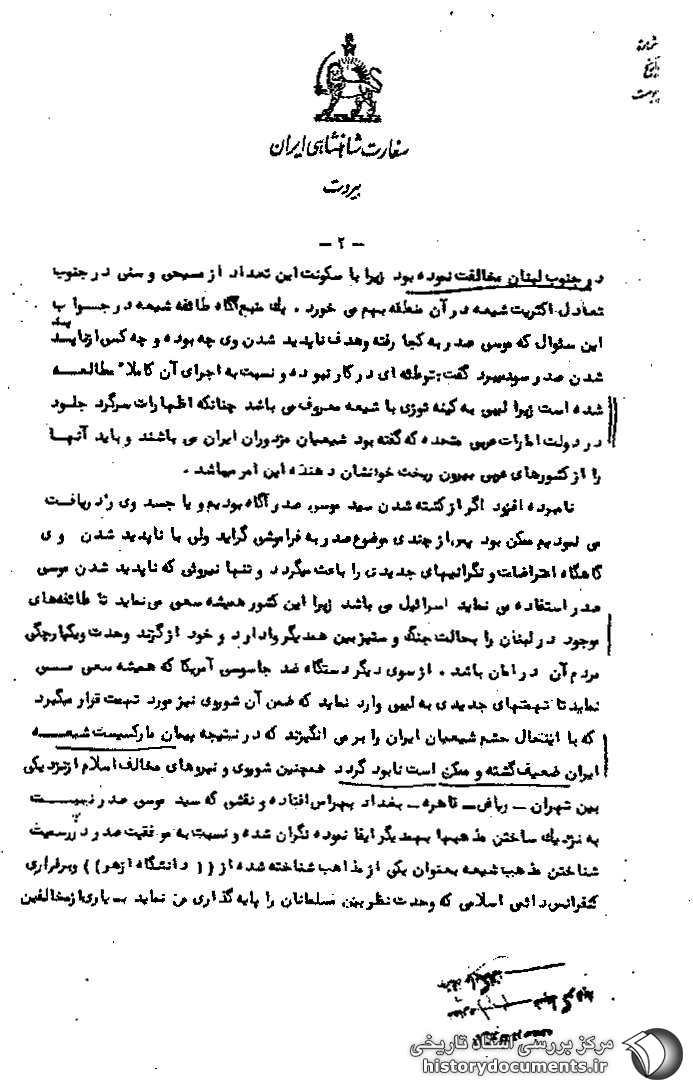 شماره
تاریخ
پیوست
سفارت شاهنشاهی ایران
بیروت
— ۲ —
در جنوب لبنان مخالفت نموده بود زیرا با سکونت این تعداد از مسیحی و سنی در جنوب
تعادل اکثریت شیعه در آن منطقه بهم می خورد . یک منبع آگاه طائفه شیعه در جواب
این سئوال که موسی صدر به کجا رفته وهدف ناپدید شدن وی چه بوده و چه کس از ناپدید
شدن صدر سود میبرد گفت : توطئه ای در کار نبوده و نسبت به اجرای آن کاملا" مطالعه
شده است زیرا لیبی به کینه توزی با شیعه معروف می باشد چنانکه اظهارات سرگرد جلود
در دولت امارات عربی متحده که گفته بود شیعیان مزدوران ایران می باشند و باید آنها
را از کشورهای عربی بیرون ریخت خود نشان دهنده این امر میباشد .
نامبرده افزود اگر از کشته شدن سید موسی صدر آگاه بودیم و یا جسد وی را دریافت
می نمودیم ممکن بود پس از چندی موضوع صدر به فراموشی گراید ولی با ناپدید شدن وی
گاهگاه اعتراضات و نگرانیهای جدیدی را باعث میگردد و تنها نیروئی که ناپدید شدن موسی
صدر استفاده می نماید اسرائیل می باشد زیرا این کشور همیشه سعی می نماید تا طائفه های
موجود در لبنان را بحالت جنگ و ستیز بین همدیگر وادارد و خود از گزند وحدت ویکپارچگی
مردم آن در امان باشد . از سوی دیگر دستگاه ضد جاسوسی آمریکا که همیشه سعی می
نماید تا تهمتهای جدیدی به لیبی وارد نماید که ضمن آن شوروی نیز مورد تهمت قرار میگیرد
که با اینحال خشم شیعیان ایران را بر می انگیزند که در نتیجه پیمان مارکسیست شیعه
ایران ضعیف گشته و ممکن است نابود گردد همچنین شوروی و نیروهای مخالف اسلام از نزدیکی
بین تهران – ریاض – قاهره – بغداد بهراس افتاده و نقشی که سید موسی صدر نسبت
به نزدیک ساختن مذهبها بهمدیگر ایفا نموده نگران شده و نسبت به موفقیت صدر در رسمیت
شناختن مذهب شیعه بعنوان یکی از مذاهب شناخته شده از (( دانشگاه ازهر )) و برقراری
کنفرانس دائمی اسلامی که وحدت نظر بین مسلمانان را پایه گذاری می نماید بسیاری از مخالفین
مرکز بررسی اسناد تاریخی
historydocuments.ir